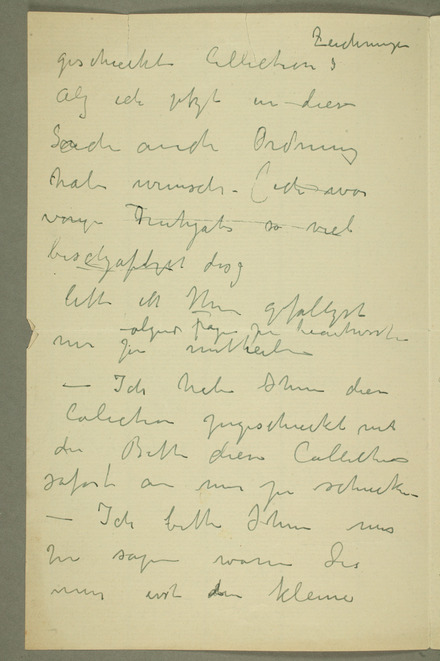 Zeichnungen
geschickte Collection s
Als ich jetzt in diese
Sache auch Ordnung
habe wünsche. Ich war
vorige Frühjahr so viel
beschäftigt das
bitte ich Ihnen gefälligst
folgende Frage zu beantworten
mir zu mittheilen
— Ich habe Ihnen diese
Colection zugeschickt mit
die Bitte diese Collection
sofort an mir zu schicken
— Ich bitte Ihnen mir
zu sagen warum Sie
mir erst den kleine